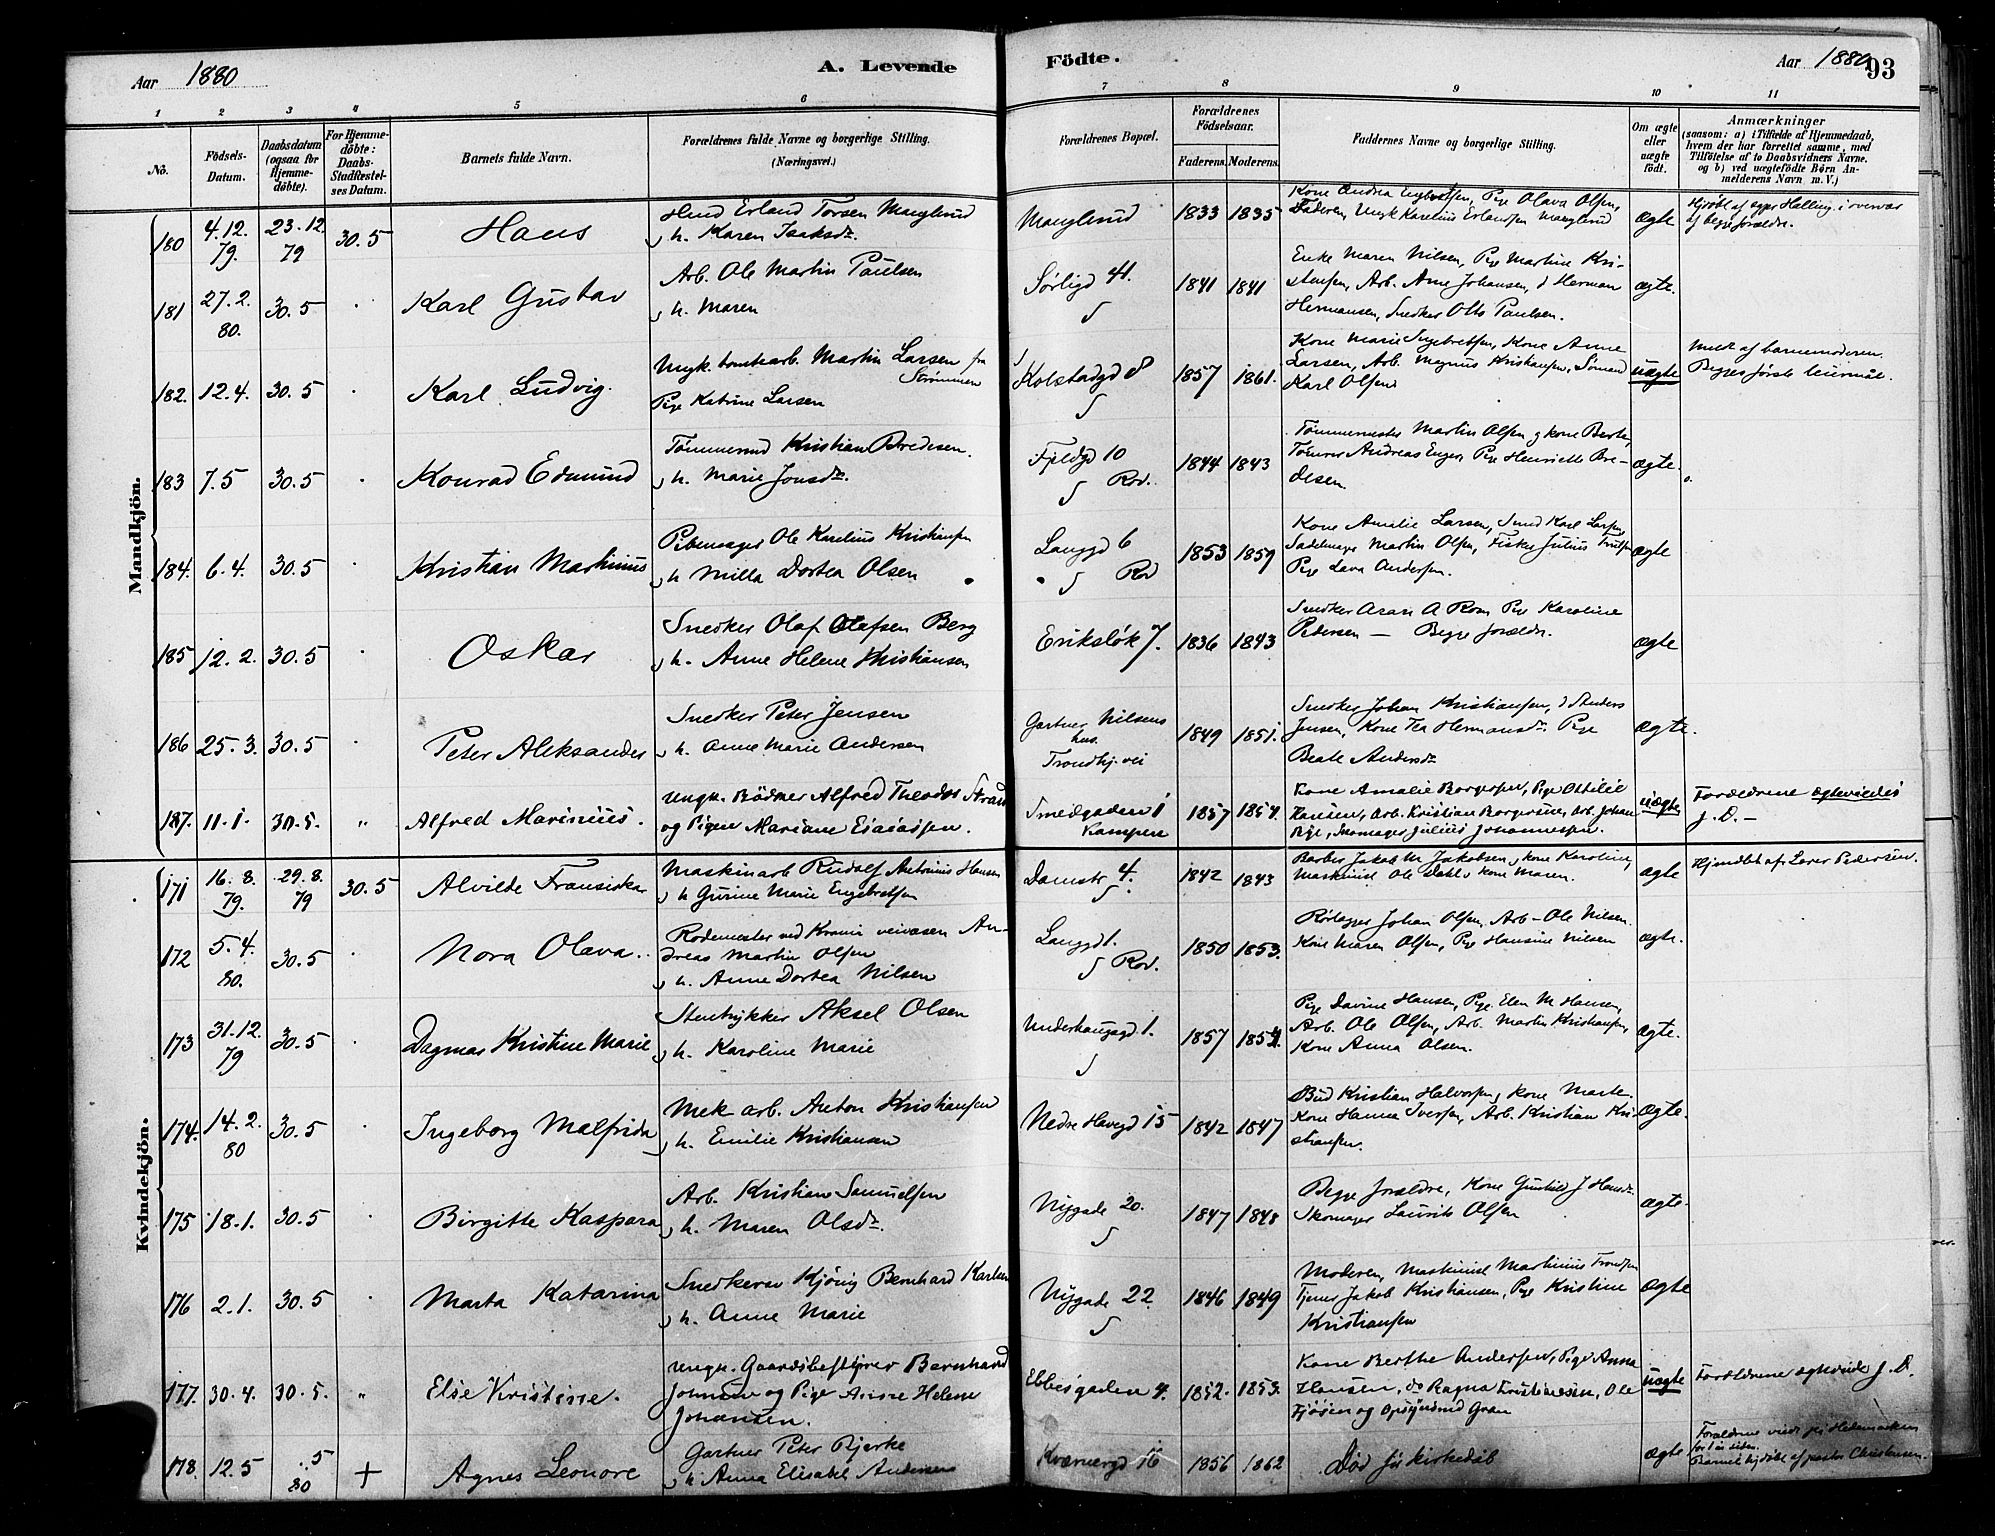 Aar 1880
A. Levende Födte.
Aar 1880
93
1 2 3 4 5 6 7 8 9 10 11
No.
Födsels-
Datum.
Daabsdatum
(ogsaa for
Hjemme-
döbte).
For Hjemme-
döbte:
Daabs-
Stadfæstel-
ses Datum.
Barnets fulde Navn.
Forældrenes fulde Navne og borgerlige Stilling.
(Næringsvei.)
Forældrenes Bopæl.
Forældrenes
Födselsaar.
Faderens. Moderens.
Faddernes Navne og borgerlige Stilling.
Om ægte
eller
uægte
födt.
Anmærkninger
(saasom: a) i Tilfælde af Hjemmedaab,
hvem der har forrettet samme, med
Tilföielse af to Daabsvidners Navne.
og b) ved uægtefödte Börn An-
melderens Navn m. V.)
Mandkjön.
180 4.12. 79. 23.12. 79 30.5 Hans
Erland Torsen Manglerud
h. Karen Isaksd.
Manglerud 1833 1835
Kone Andrea Engbretsen, Pige Olava Olsen,
Faderen, Ungk Karelius Erlandsen Manglerud
ægte
af begge forældre.
181 27.2. 80. 30.5 Karl Gustav
Arb. Ole Martin Paulsen
h. Maren
Sørligd 41. 1841 1841
Enke Maren Nilsen, Pige Martine Kri-
stensen, Arb. Arne Johansen, Herman
Hermansen, Snedker Otto Paulsen.
ægte.
182. 12.4. 30.5 Karl Ludvig.
Ungk. Martin Larsen fra
Strømmen
Pige Katrine Larsen
Kolstadgd 8 1857 1861.
Kone Marie Ingebretsen, Kone Anne
Larsen, Arb. Magnus Kristiansen, Sømand
Karl Olsen
uægte
Meldt af barnemoderen.
Begges første leiermål.
183 7.5 30.5 Konrad Edmund
Tømmermd Kristian Bredesen.
h. Marie Jonsd.
Fjeldgd 10 1844 1843
Tømmermester Martin Olsen g kone Berte,
Tømrer Andreas Enger, Pige Henriette Bre-
desen.
ægte.
184. 6.4. 30.5 Kristian Martinius
Pibemager Ole Karelius Kristiansen
h Milla Dortea Olsen
Langgd 6 1853 1859
Kone Amalie Larsen, Smed Karl Larsen,
Sadelmager Martin Olsen, Fisker Julius
Pige Lava Andersen.
ægte
185 12.2. 30.5 Oskar
Snedker Olaf Olafsen Berg
h. Anne Helene Kristiansen
Eriksløk 7. 1836 1843
Snedker A Pige Karoline
Pedersen — Begge forældr.
ægte
186 25.3. 30.5 Peter Aleksander
Snedker Peter Jensen
h. Anne Marie Andersen
Gartner Nilsens
hus.
Trondhj. vei
1849 1851.
Snedker Johan Kristiansen, Anders
Jensen, Kone Tea Hermansd. Pige
Beate Andersd.
ægte.
187. 11.1. 30.5. „ Alfred Marinius.
Ungk. Bödker Alfred Theodor Strand
og Pigen Mariane Esaiassen.
Smedgaden 1
Kampen
1857 1857.
Kone Amalie Borgersen, Pige Ottilie
Hansen, Arb. Kristian Borgersen, Arb. Johan
Bye, Skomager Julius Johannesen.
uægte
Forældrene ægteviedes
J. D. —
Kvindekjön.
171 16.8. 79. 29.8. 79 30.5 Alvilde Fransiska
Maskinarb Rudolf Antonius Hansen
h Gurine Marie Engebretsen
Damstr 4. 1842 1843
Barber Jakob M. Jakobsen, kone Karoline,
Maskinist Ole Dahl kone Maren.
ægte
Hjemdöbt af Pedersen.
172 5.4. 80. 30.5 Nora Olava.
Rodemester ved veivæsen An-
dreas Martin Olsen
h. Anne Dortea Nilsen
Langgd 1. 1850 1853.
Rørlægger Johan Olsen, Arb. Ole Nilsen.
Kone Maren Olsen, Pige Hansine Nilsen
ægte.
173 31.12. 79 30.5 Dagmar Kristine Marie
Stentrykker Aksel Olsen
h. Karoline Marie
Underhaugsgd 1. 1857
Pige Davine Hansen, Pige Elen M Hansen,
Arb. Ole Olsen, Arb. Martin Kristiansen,
Kone Anna Olsen.
ægte.
174. 14.2. 80 30.5 Ingeborg Malfrida
Mek. arb. Anton Kristiansen
h. Emilie Kristiansen
Nedre Havegd 15 1842 1847
Bud Kristian Halvorsen, kone Marte.
Kone Hanna Iversen, Arb. Kristian Kri-
stiansen.
ægte.
175 18.1. 30.5 Birgitte Kaspara
Arb. Kristian Samuelsen
h. Maren Olsd.
Nygade 20. 1847 1848
Begge forældre, Kone Gunhild J Hansd.
Skomager Laurits Olsen
ægte.
176 2.1. 30.5 Marta Katarina
Snedkersv Kjönig Bernhard Karlsen
h. Anne Marie
Nygade 22. 1846 1849
Moderen, Maskinist Martinius Trondsen
Tjener Jakob Kristiansen, Pige Kristine
Kristiansen
ægte
177. 30.4. 30.5. „ Else Kristine.
Ungk. Gaardsbestyrer Bernhard
Johnsen og Pige Anne Helene
Johansen.
Ebbesgaden 4. 1852. 1853.
Kone Berthe Andersen, Pige Anna
Hansen, do Ragna Kristiansen, Ole
Fjösen og Opsynsmd Gran
uægte
Forældrene ægtevied J. D.
178. 12.5 ..5 80 + Agnes Leonore
Gartner Peter Bjerke
h. Anna Elisabet Andersen
Kværnergd 16 1856 1862
Död før kirkedåb
ægte
Forældrene viet på Hedemarken
for 1 år siden.
Barnet hjdöbt af pastor Christensen.